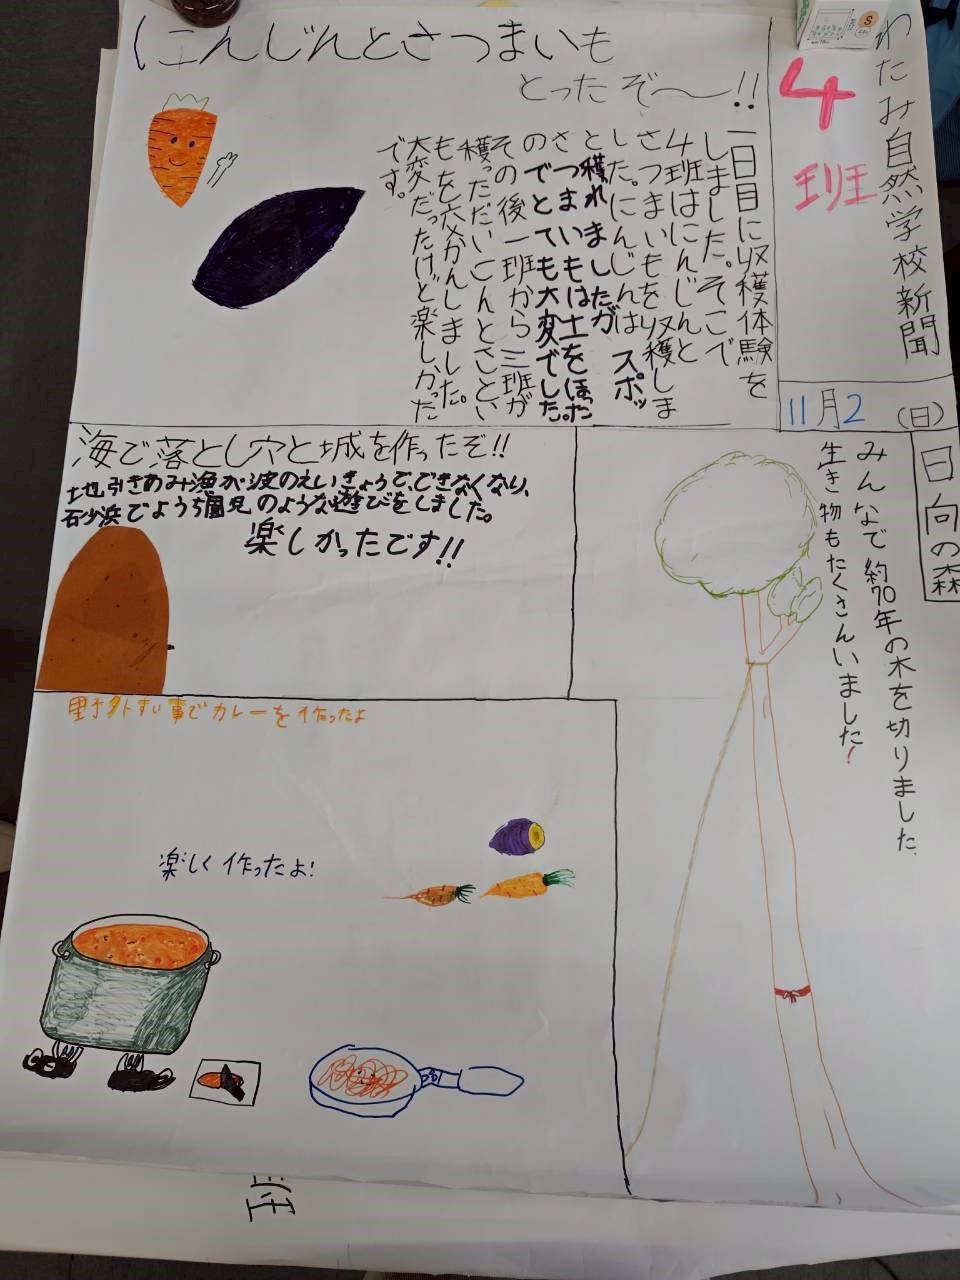 わたみ自然学校新聞
4班
11月2(日)
にんじんとさつまいも
とったぞ〜!!
一日目に収穫体験を
しました。そこで
4班はにんじんと
さつまいもを収穫しま
した。にんじんは スポッ
と穫れましたが
さつまいもは土をほった
のでとても大変でした。
その後一班から三班が
穫っただいこんとさとい
もを交かんしました。
大変だったけど楽しかった
です。
海で落とし穴と城を作ったぞ!!
地引きあみ漁が波のえいきょうで、できなくなり、
砂浜でようち園児のような遊びをしました。
楽しかったです!!
日向の森
みんなで約70年の木を切りました。
生き物もたくさんいました!
野外すい事でカレーを作ったよ
楽しく作ったよ!